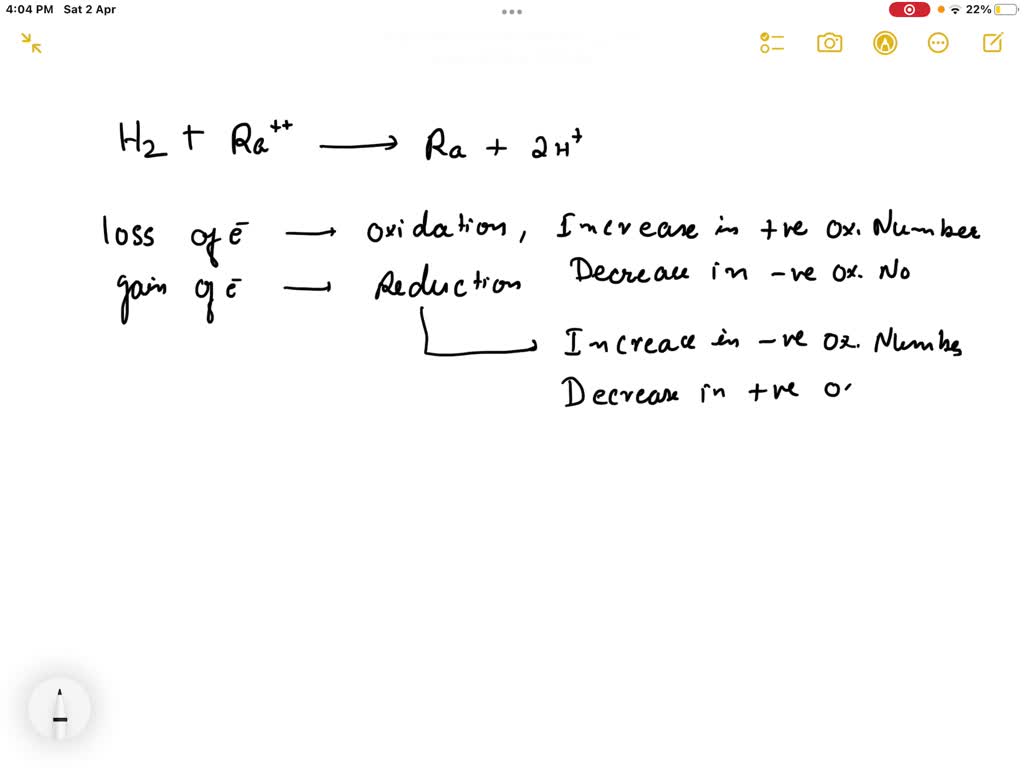 4:04 PM Sat 2 Apr
22%
H₂ + Ra⁺⁺ ⟶ Ra + 2H⁺
loss of ē → oxidation, Increase in +ve ox. Number
Decrease in -ve ox. No
gain of ē → Reduction
Increace in -ve Ox. Numbe
Decrease in +ve o